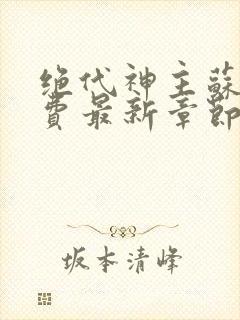 绝代神主蘇
費最新章節
坂本清峰